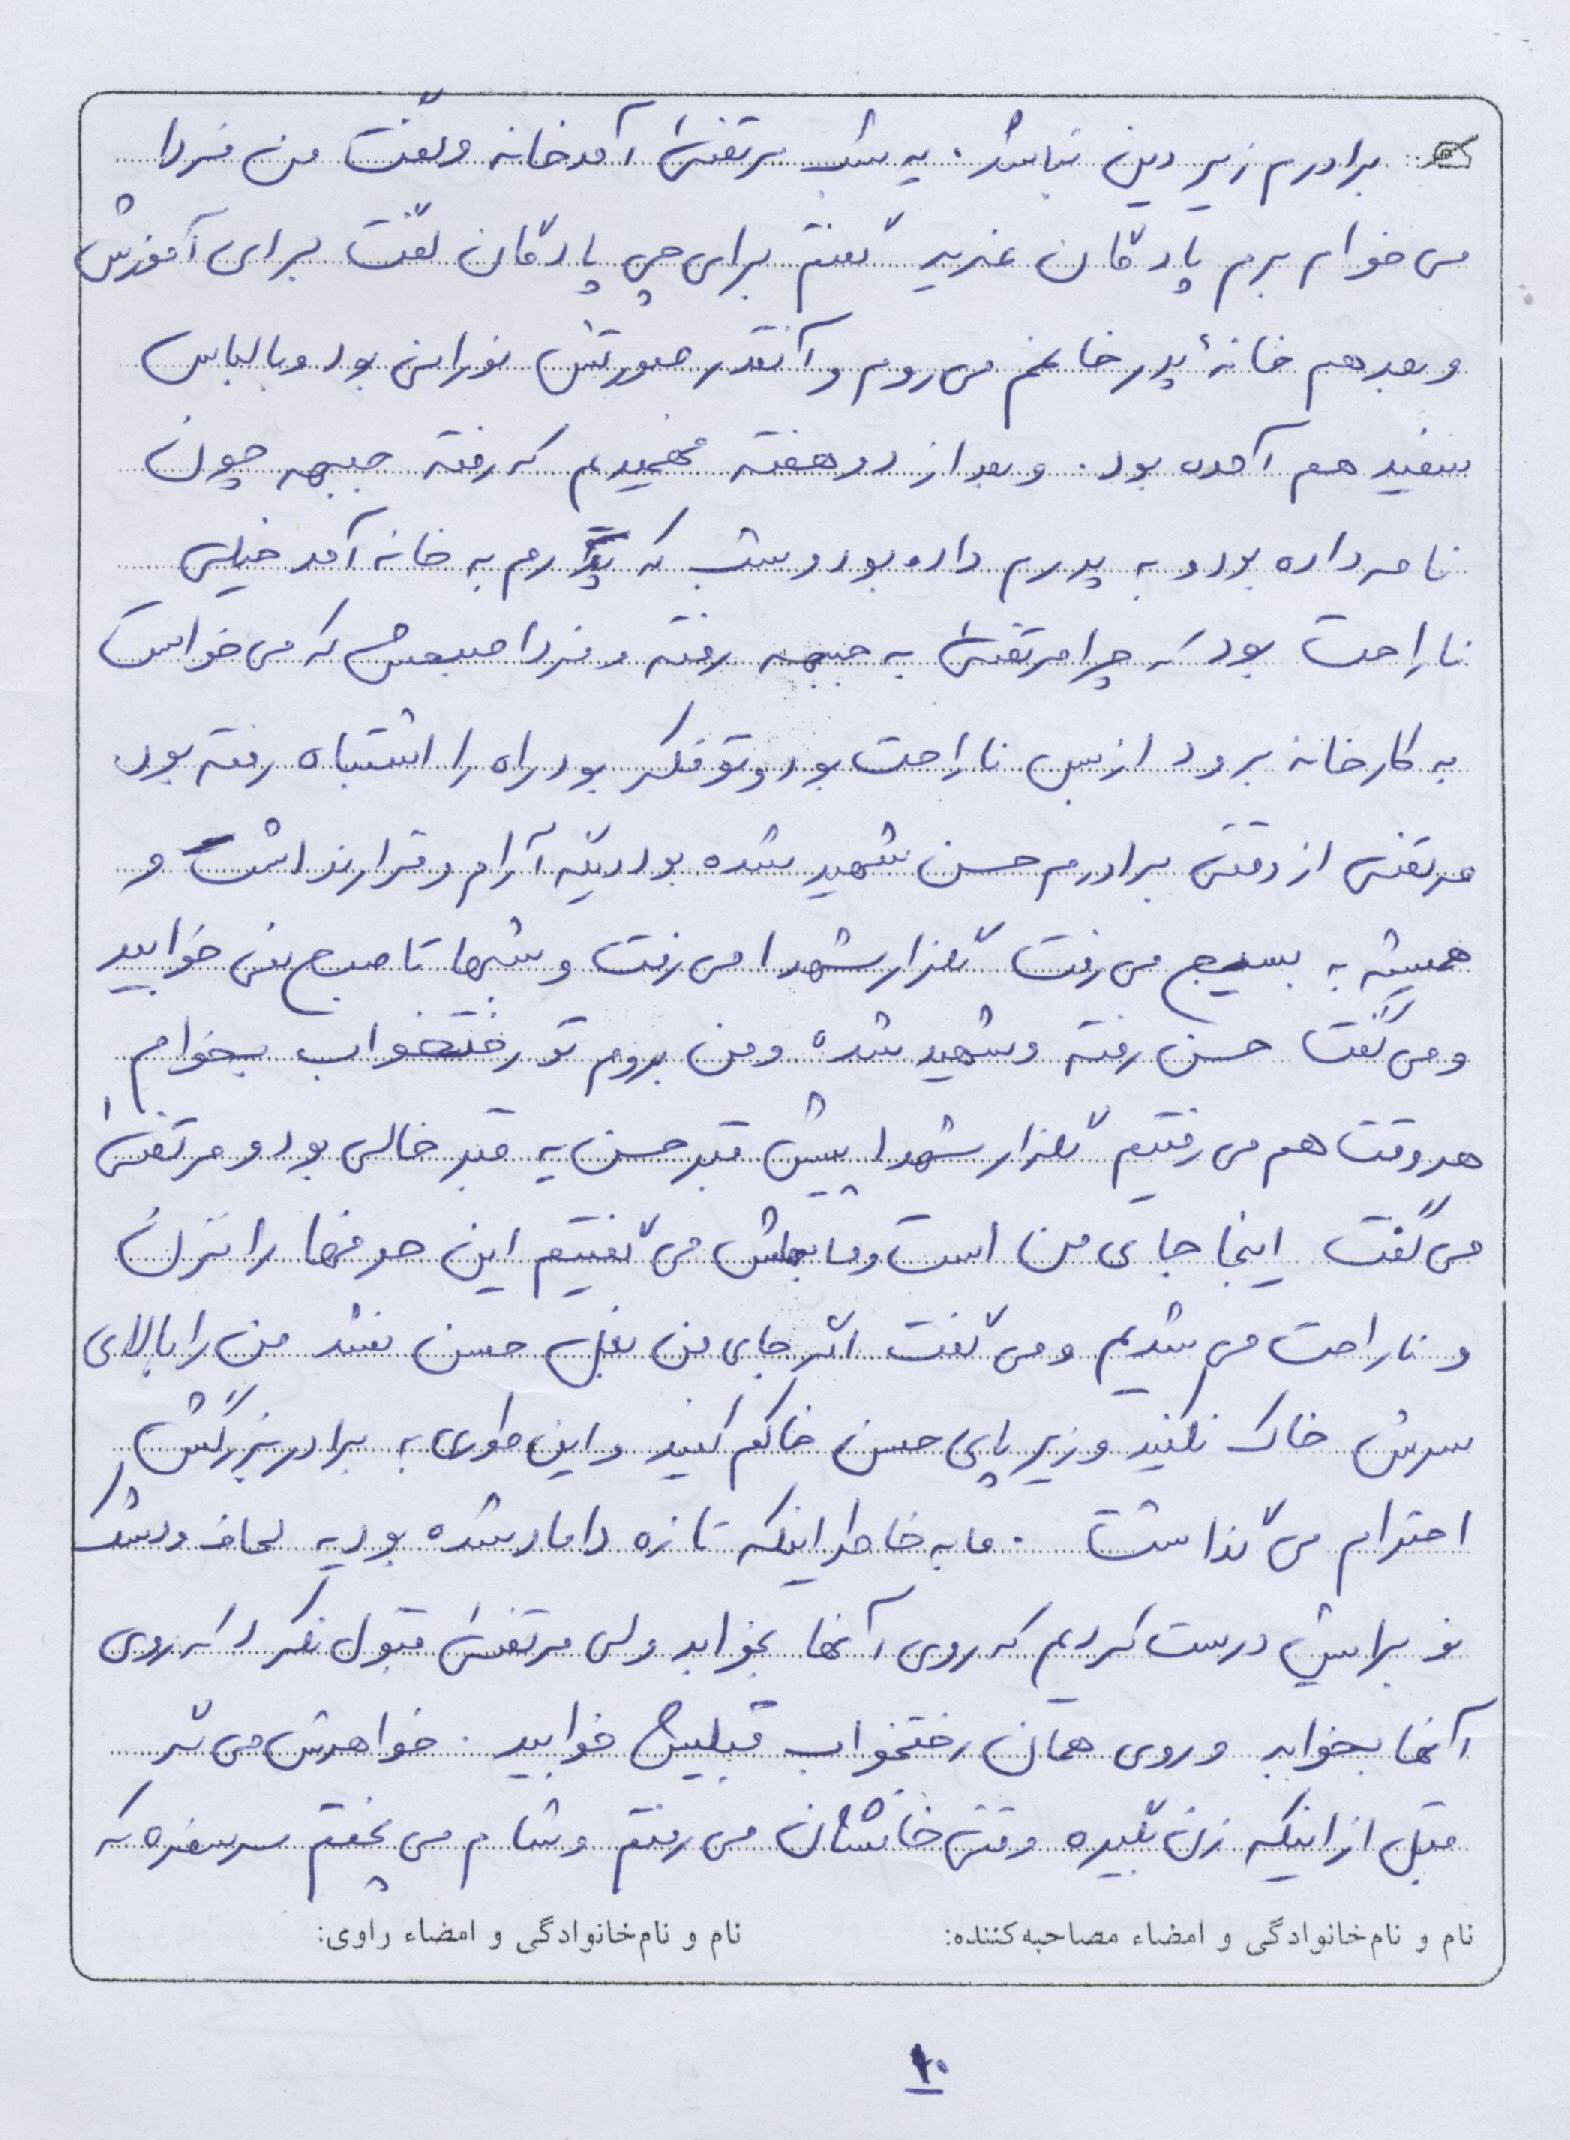 برادرم زیر دین نباشد. یه شب مرتضیٰ آمد خانه و گفت من فردا
می خوام برم پادگان غدیر گفتم برای چی پادگان گفت برای آموزش
و بعد هم خانهٔ پدر خانمم می روم و آنقدر صورتش نورانی بود و با لباس
سفید هم آمده بود. و بعد از دو هفته فهمیدم که رفته جبهه چون
نامه داده بود و به پدرم داده بود و شب که پدرم به خانه آمد خیلی
ناراحت بود که چرا مرتضیٰ به جبهه رفته و فردا صبحش که می خواست
به کارخانه برود از بس ناراحت بود و تو فکر بود راه را اشتباه رفته بود.
مرتضی از وقتی برادرم حسن شهید شده بود دیگه آرام و قرار نداشت و
همیشه به بسیج می رفت گلزار شهدا می رفت و شبها تا صبح نمی خوابید
و می گفت حسن رفته و شهید شده و من بروم تو رختخواب بخوابم
هر وقت هم می رفتیم گلزار شهدا پیش قبر حسن یه قبر خالی بود و مرتضیٰ
می گفت اینجا جای من است و ما بهش می گفتیم این حرفها را نزن
و ناراحت می شدیم و می گفت اگر جای من بغل حسن نشد من را بالای
سرش خاک نکنید و زیر پای حسن خاکم کنید و این طوری به برادر بزرگش
احترام می گذاشت. ما به خاطر اینکه تازه داماد شده بود یه لحاف و تشک
نو براش درست کردیم که روی آنها بخوابد ولی مرتضیٰ قبول نکرد که روی
آنها بخوابد و روی همان رختخواب قبلیش خوابید. خواهرش می گه
قبل از اینکه زن بگیره وقتی خانشان می رفتم و شام می پختم سر سفره که
نام و نام‌خانوادگی و امضاء مصاحبه‌کننده: نام و نام‌خانوادگی و امضاء راوی:
۱۰